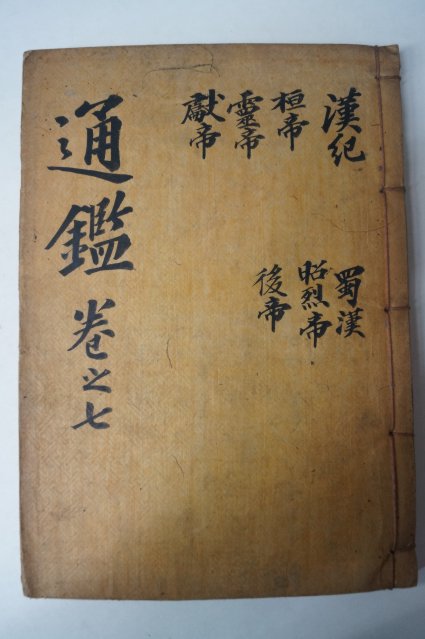 漢紀
桓帝
靈帝
獻帝
蜀漢
昭烈帝
後帝
通鑑
卷之七